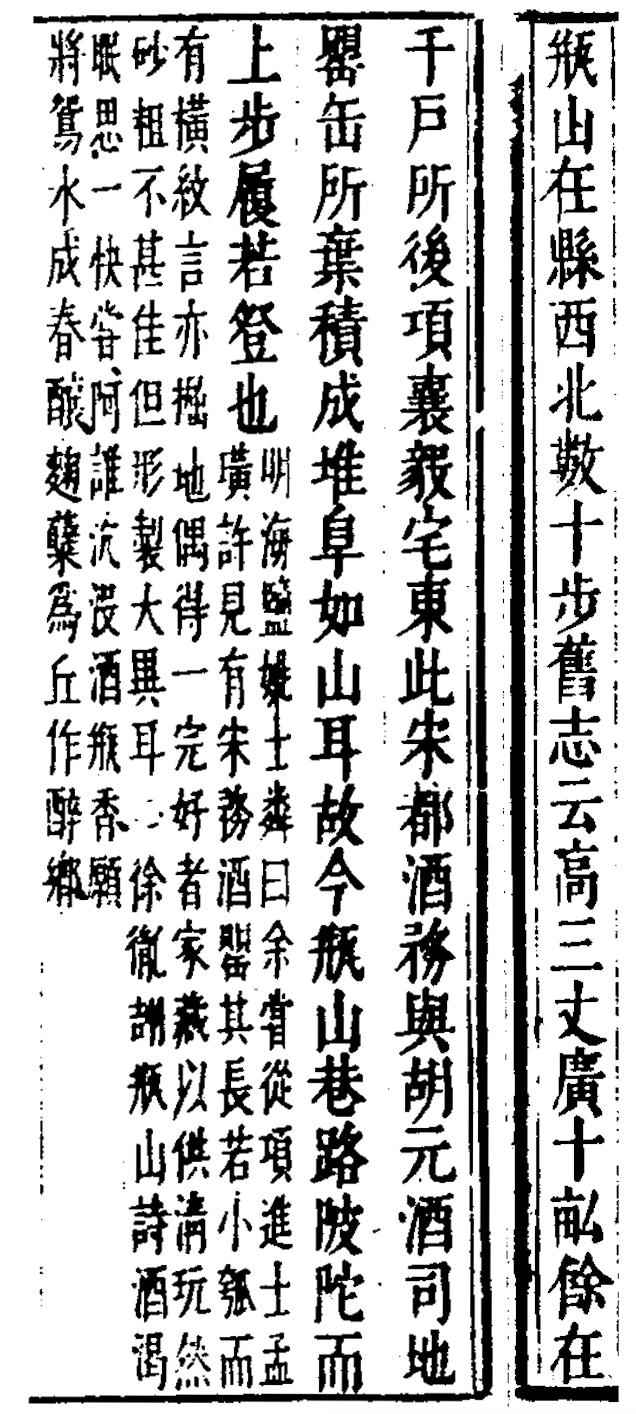 瓶山在縣西北數十步舊志云高三丈廣十畝餘在
千戶所後項襄毅宅東此宋都酒務與胡元酒司地
罌缶所棄積成堆阜如山耳故今瓶山巷路陂陀而
上步履若登也
明海鹽姚士粦曰余嘗從項進士孟
璜許見有宋務酒罌其長若小瓠而
有橫紋言亦掘地偶得一完好者家藏以供淸玩然
砂粗不甚佳但形製大異耳
徐徹詶瓶山詩酒渴
眠思一快嘗阿誰沉浸酒瓶香願
將鴛水成春醸麴糵爲丘作醉鄉